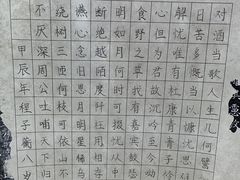 对酒当歌人生几何譬
日苦多慨当以慷忧思
解忧唯有杜康青青子
心但为君故沉吟至今
食野之苹我有嘉宾
明如月何时可掇忧从
断绝越陌度阡枉用相
讌心念旧恩月明星稀
绕树三匝何枝可依山
不厌深周公吐哺天下
甲辰年 子蘅八岁